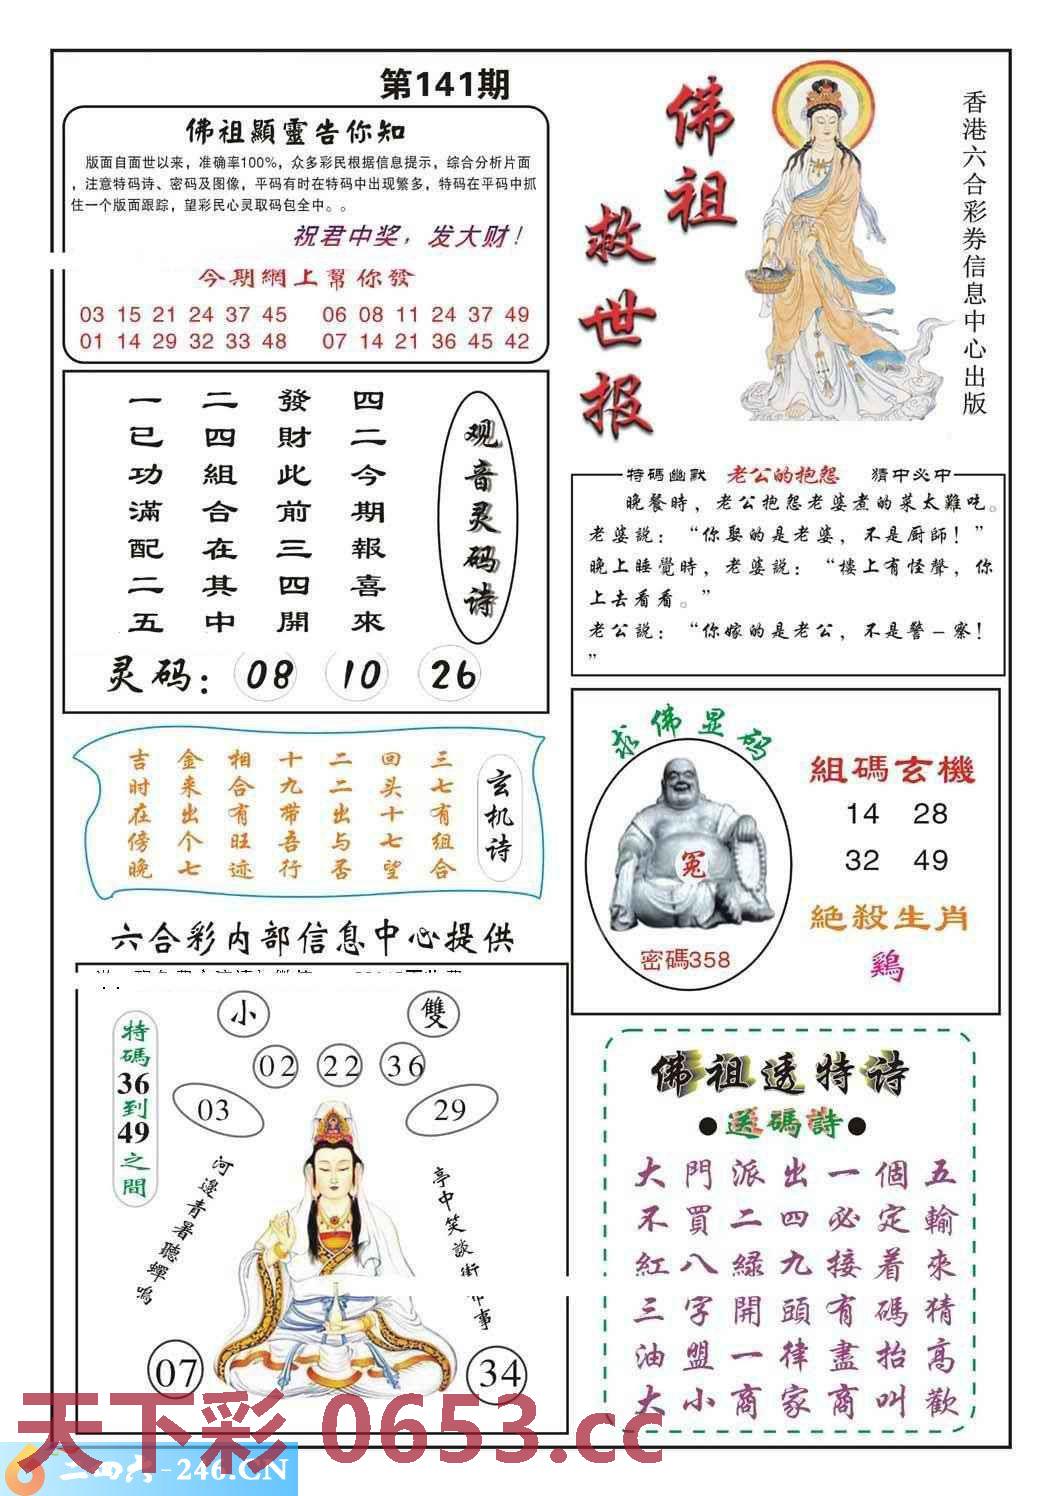 第141期
佛祖顯靈告你知
版面自面世以来，准确率100%，众多彩民根据信息提示，综合分析片面
，注意特码诗、密码及图像，平码有时在特码中出现繁多，特码在平码中抓
住一个版面跟踪，望彩民心灵取码包全中。。
祝君中奖，发大财！
今期網上幫你發
03 15 21 24 37 45 06 08 11 24 37 49
01 14 29 32 33 48 07 14 21 36 45 42
佛祖
救世报
香港六合彩券信息中心出版
观音灵码诗
四二今期報喜來
發財此前三四開
二四組合在其中
一已功滿配二五
灵码：08 10 26
特碼幽默 老公的抱怨 猜中必中
晚餐時，老公抱怨老婆煮的菜太難吃。
老婆説：“你娶的是老婆，不是厨師！”
晚上睡覺時，老婆説：“樓上有怪聲，你
上去看看。”
老公説：“你嫁的是老公，不是警－察！
”
玄机诗
三七有组合
回头十七望
二二出与否
十九带吾行
相合有旺迹
金来出个七
吉时在傍晚
求佛显码
冤
密碼358
組碼玄機
14 28
32 49
絶殺生肖
鷄
六合彩内部信息中心提供
小 雙
02 22 36
03 29
特碼36到49之間
河邊青暑聽蟬鳴
亭中笑談街
事
07 34
佛祖透特诗
●送碼詩●
大門派出一個五
不買二四必定輸
紅八緑九接着來
三字開頭有碼猜
油盟一律盡抬高
大小商家商叫歡
天下彩 0653.cc
二四六-246.CN